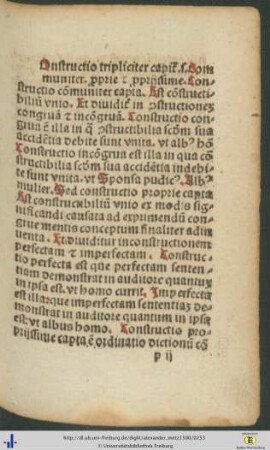 Onstructio tripliciter capit̃.s.Com
muniter. ꝓprie ⁊ ꝓprijssime. Con
structio cõmuniter capta. Est cõstructi-
biliũ vnio. Et diuidit̃ in ꝯstructionez
congruã ⁊ incõgruã. Constructio con
grua ē illa in q̃ ꝯstructibilia scðm sua
accidẽtia debite sunt vnita. vt albꝰ hõ
Constructio incõgrua est illa in qua cõ
structibilia scðm sua accidẽtia indebi-
te sunt vnita. vt Sponsa pudicꝰ. Albꝰ
mulier. Sed constructio proprie capta
Est constructibiliũ vnio ex modis sig
nificandi causata ad exprimendũ con-
grue mentis conceptum finaliter adin
uenta. Et diuiditur in constructionem
perfectam ⁊ imperfectam. Construc-
tio perfecta est que perfectam senten-
tiam demonstrat in auditore quantuz
in ipsa est. vt homo currit. Imperfecta
est illa: que imperfectam sententiaz de
monstrat in auditore quantum in ipsa
est: vt albus homo. Constructio pro-
prijssime capta ē ordinatio dictionũ cõ
p ij
http://dl.ub.uni-freiburg.de/diglit/alexander_metz1500/0233
© Universitätsbibliothek Freiburg